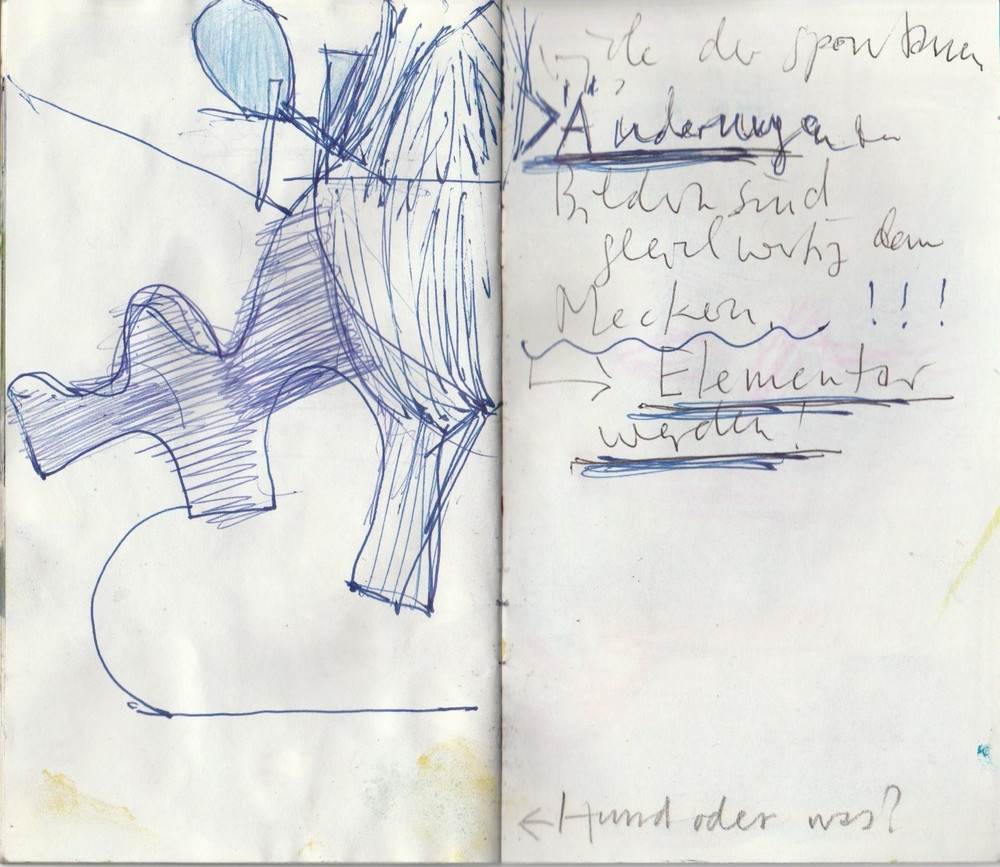 viele der spontanen
Änderungen
Bildern sind
gleichwertig dem
Meckern. !!!
→ Elementar
werden!
← Hund oder was?